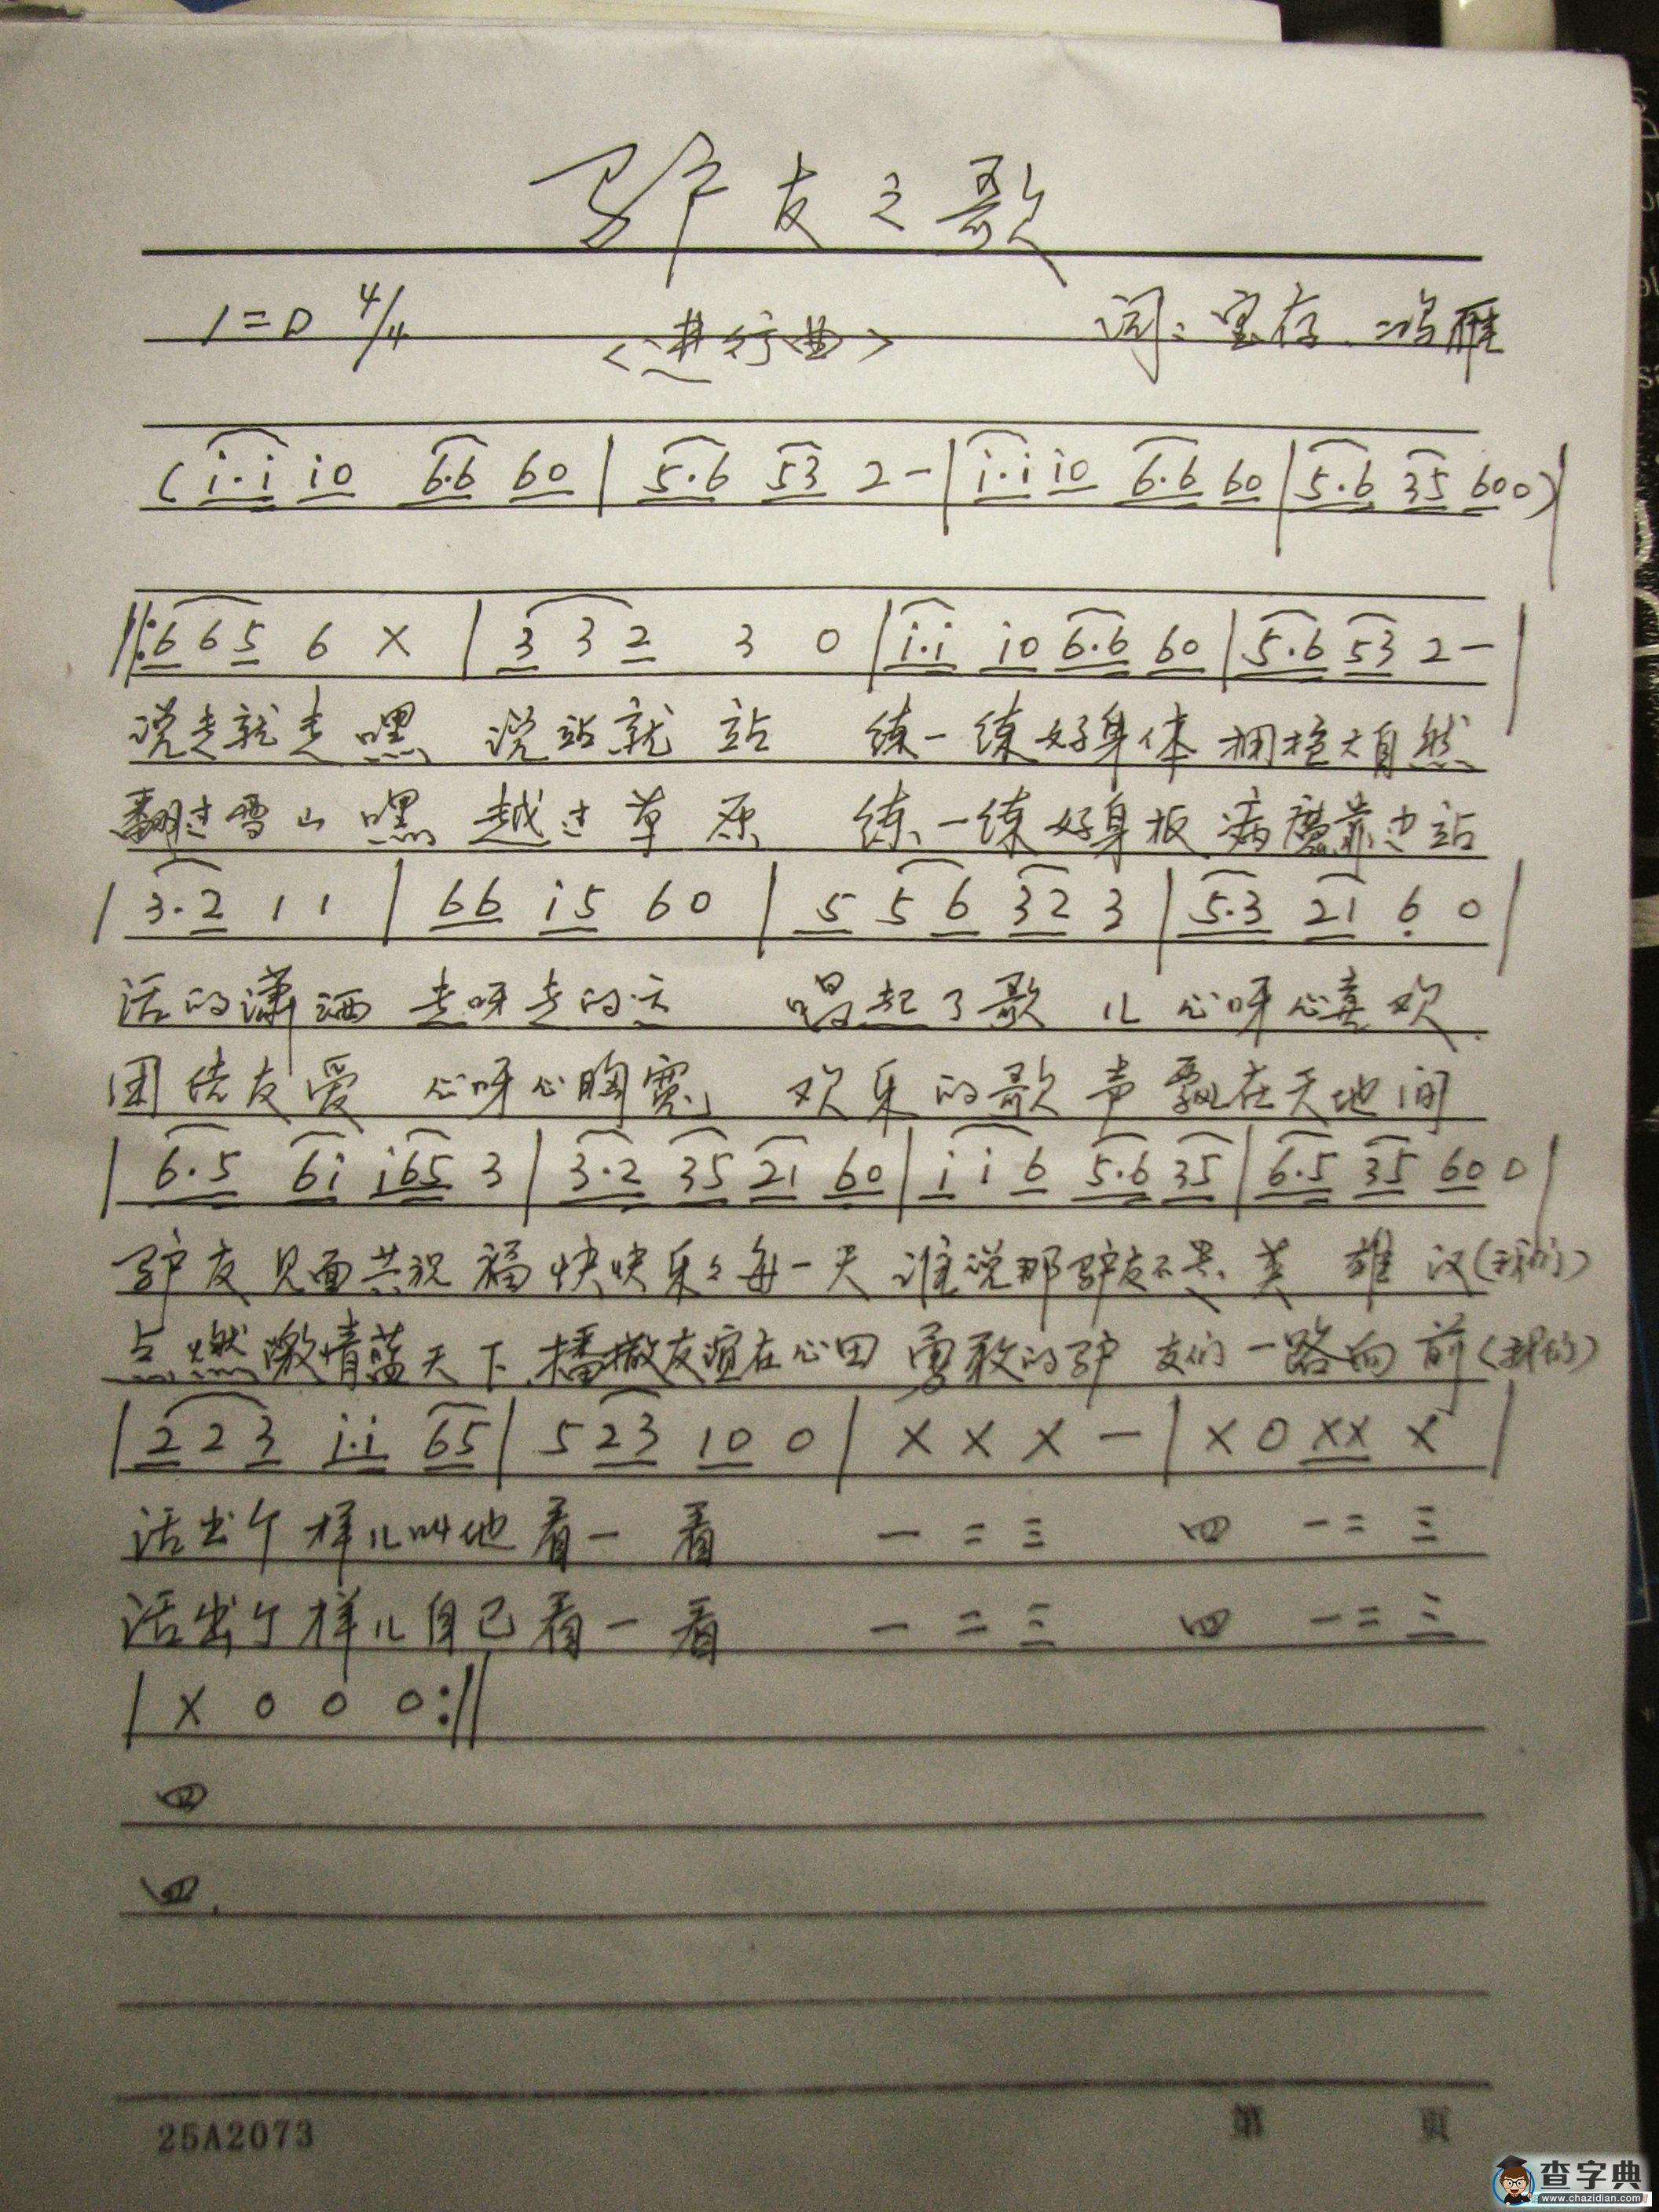 驴友之歌
1=D 4/4 <进行曲> 词:宝存.鸿雁
(i·i i0 6·6 60 | 5·6 53 2 - | i·i i0 6·6 60 | 5·6 35 60 0) |
‖: 6 6 5 6 X | 3 3 2 3 0 | i·i i0 6·6 60 | 5·6 53 2 - |
说走就走 嘿 说站就站 练一练好身体 拥抱大自然
翻过雪山 嘿 越过草原 练一练好身板 病魔靠边站
| 3·2 1 1 | 66 i5 6 0 | 5 5 6 32 3 | 5·3 21 6 0 |
活的潇洒 走呀走的 唱起了歌儿 心呀心喜欢
团结友爱 心呀心胸宽 欢乐的歌声 飘在天地间
| 6·5 6i i65 3 | 3·2 35 21 60 | i i 6 5·6 35 | 6·5 35 60 0 |
驴友见面共祝福 快快乐乐每一天 谁说那驴友不是英雄汉(我们)
点燃激情蓝天下 播撒友谊在心田 勇敢的驴友们一路向前(我们)
| 2 2 3 i·i 65 | 5 23 10 0 | X X X - | X 0 XX X |
活出个样儿叫他看一看 一二三 四 一二三
活出个样儿自己看一看 一二三 四 一二三
| X 0 0 0 :‖
四
四.
25A2073 第 页
查字典
www.chazidian.com